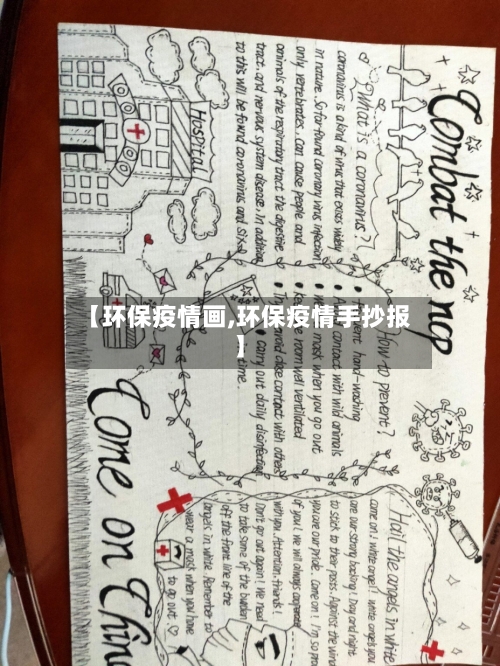 Combat the ncp
Hospital
What is a coronavirus?
coronavirus is a kind of virus that exists widely
in nature. So far found coronary virus infection
only vertebrates. Can cause people and
animals of the respiratory tract the digestive
tract, and nervous system disease. In addition
to this will be found coronavirus and six
How to prevent?
hand-washing
contact with wild animals
mask when you go out
room well ventilated
close contact with others
Carry out daily disinfection
time.
【环保疫情画,环保疫情手抄报
】
Hail the angels in white
come on! white angel! white angels you
are our strong backing! Day and night
to stick to their posts. Against the wind
you are our pride. Come on! I'm so
of you! We will always cooperate
with you. Attention, friends!
Don't go out again! We need
to take some of the burden
off the front line of the
angels in white. Remember to
wear a mask when you have
to go out
Come on